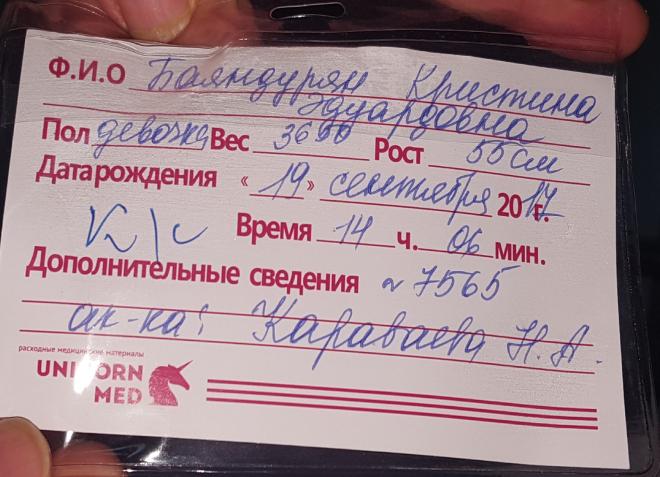 Ф.И.О Баяндурян Кристина
Эдуардовна
Пол девочка Вес 3690 Рост 55 см
Дата рождения «19» сентября 2017 г.
к/с Время 14 ч. 06 мин.
Дополнительные сведения ~ 7565
ак-ка: Караваева Н. А.
расходные медицинские материалы
UNICORN
MED